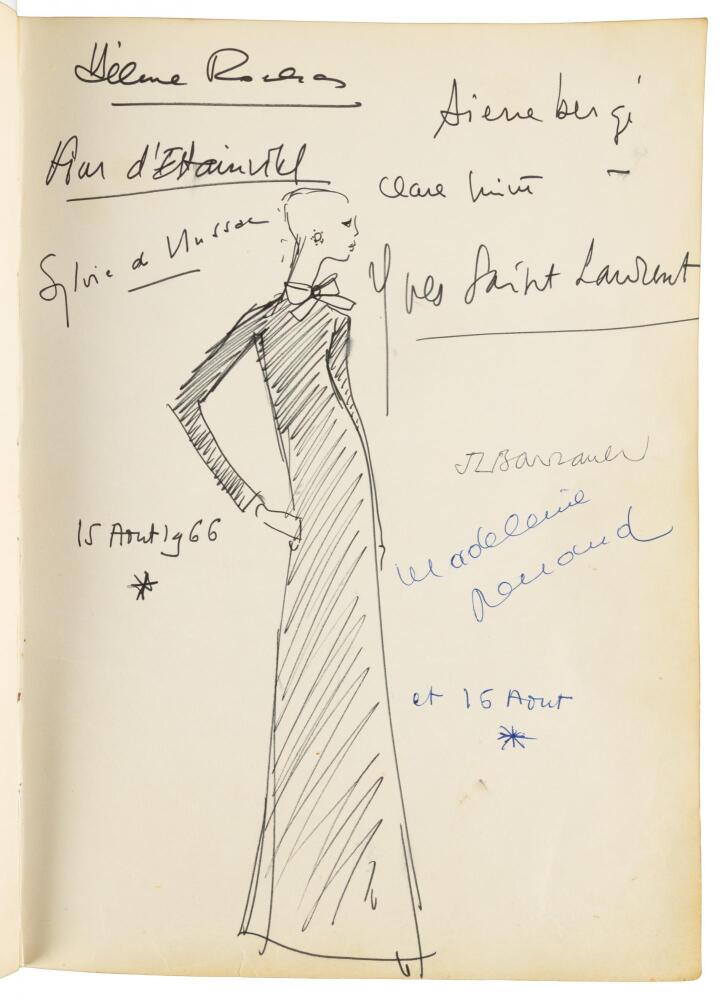 Hélène Rochas
Pierre bergé
Kim d'Estainville
Clare
Sylvie de
Yves Saint Laurent
JLBarrault
15 Aout 1966
Madeleine
Renaud
et 16 Aout